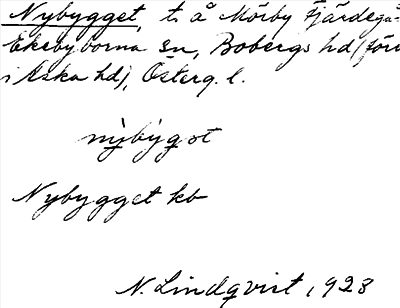 Nybygget, t. å Mörby Fjärdegå-
Ekebyborna sn, Bobergs hd (föru
i Aska hd), Österg. l.
nỳbýgot
Nybygget kb
N. Lindqvist 1923